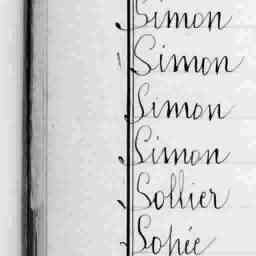 Simon
Simon
Simon
Simon
Sollier
Sohée